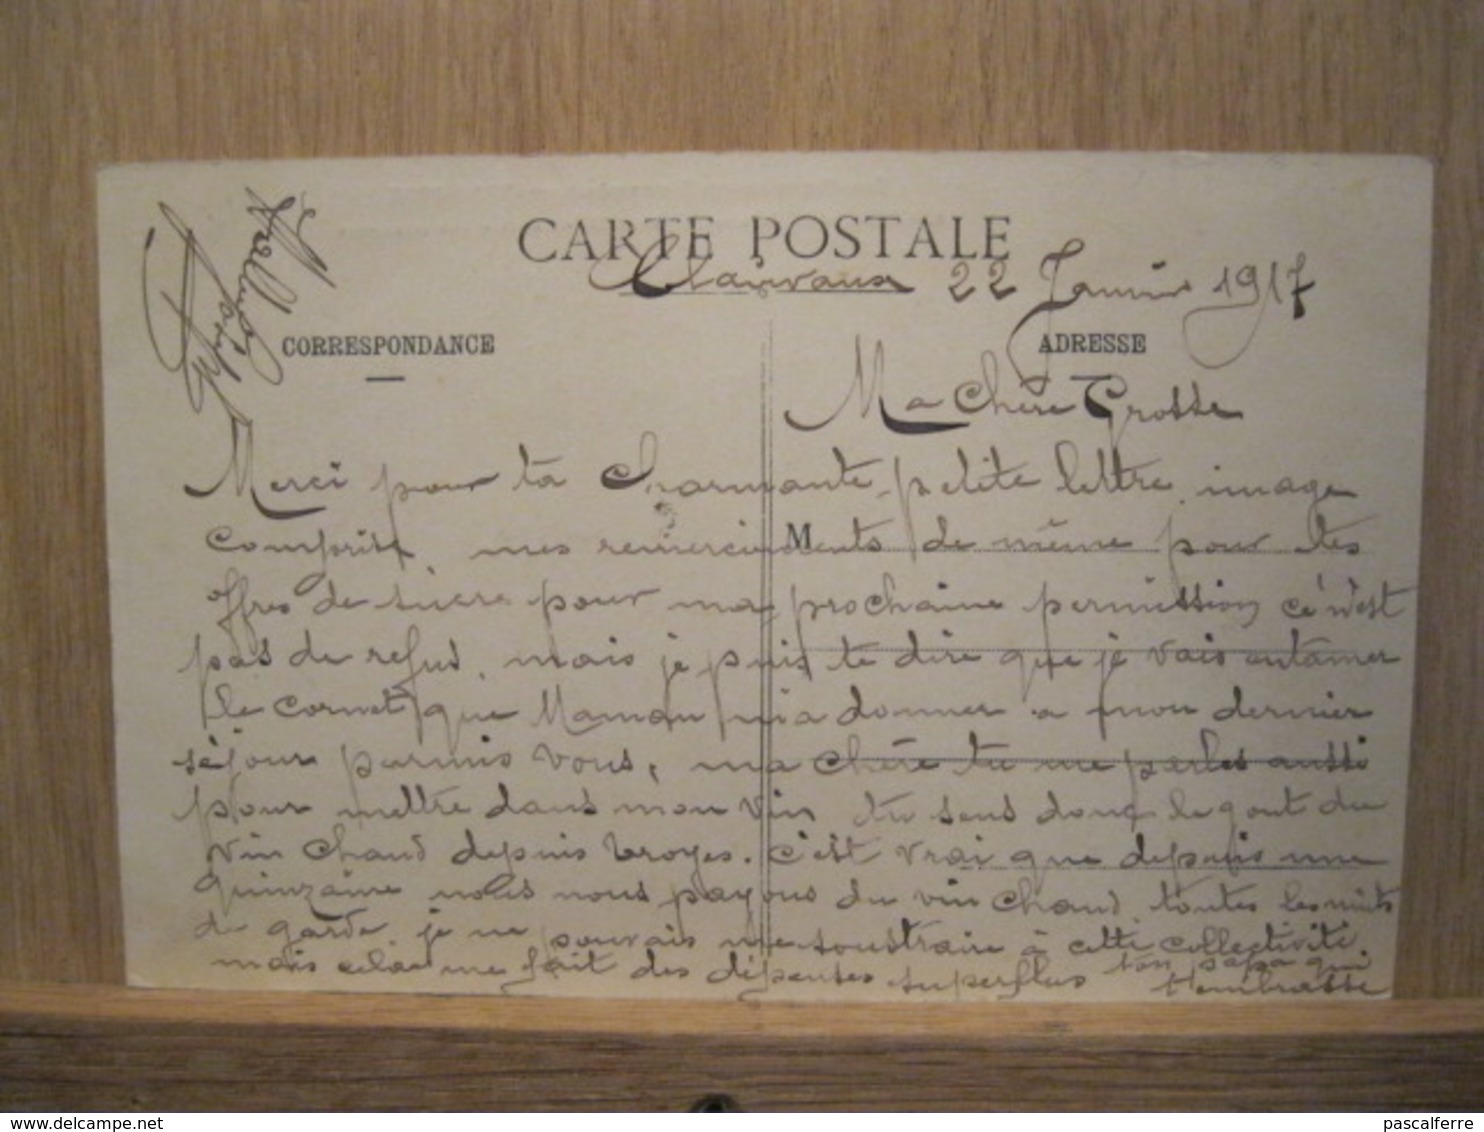 CARTE POSTALE
Clairvaux 22 Janvier 1917
CORRESPONDANCE
ADRESSE
Ma Chère Grosse
Merci pour ta Charmante petite lettre, image
comprise, mes remerciements de même pour tes
M
offres de sucre pour ma prochaine permission ce n'est
pas de refus, mais je puis te dire que je vais entamer
le cornet que Maman m'a donner a mon dernier
séjour parmis vous, ma chère tu me parles aussi
pour mettre dans mon vin tu sens donc le gout du
vin chaud depuis troyes. C'est vrai que depuis une
quinzaine nous nous payons du vin chaud toutes les nuits
de garde je ne pouvais me soustraire à cette collectivité
mais cela me fait des dépenses superflus ton papa qui
t'embrasse
delcampe.net
pascalferre